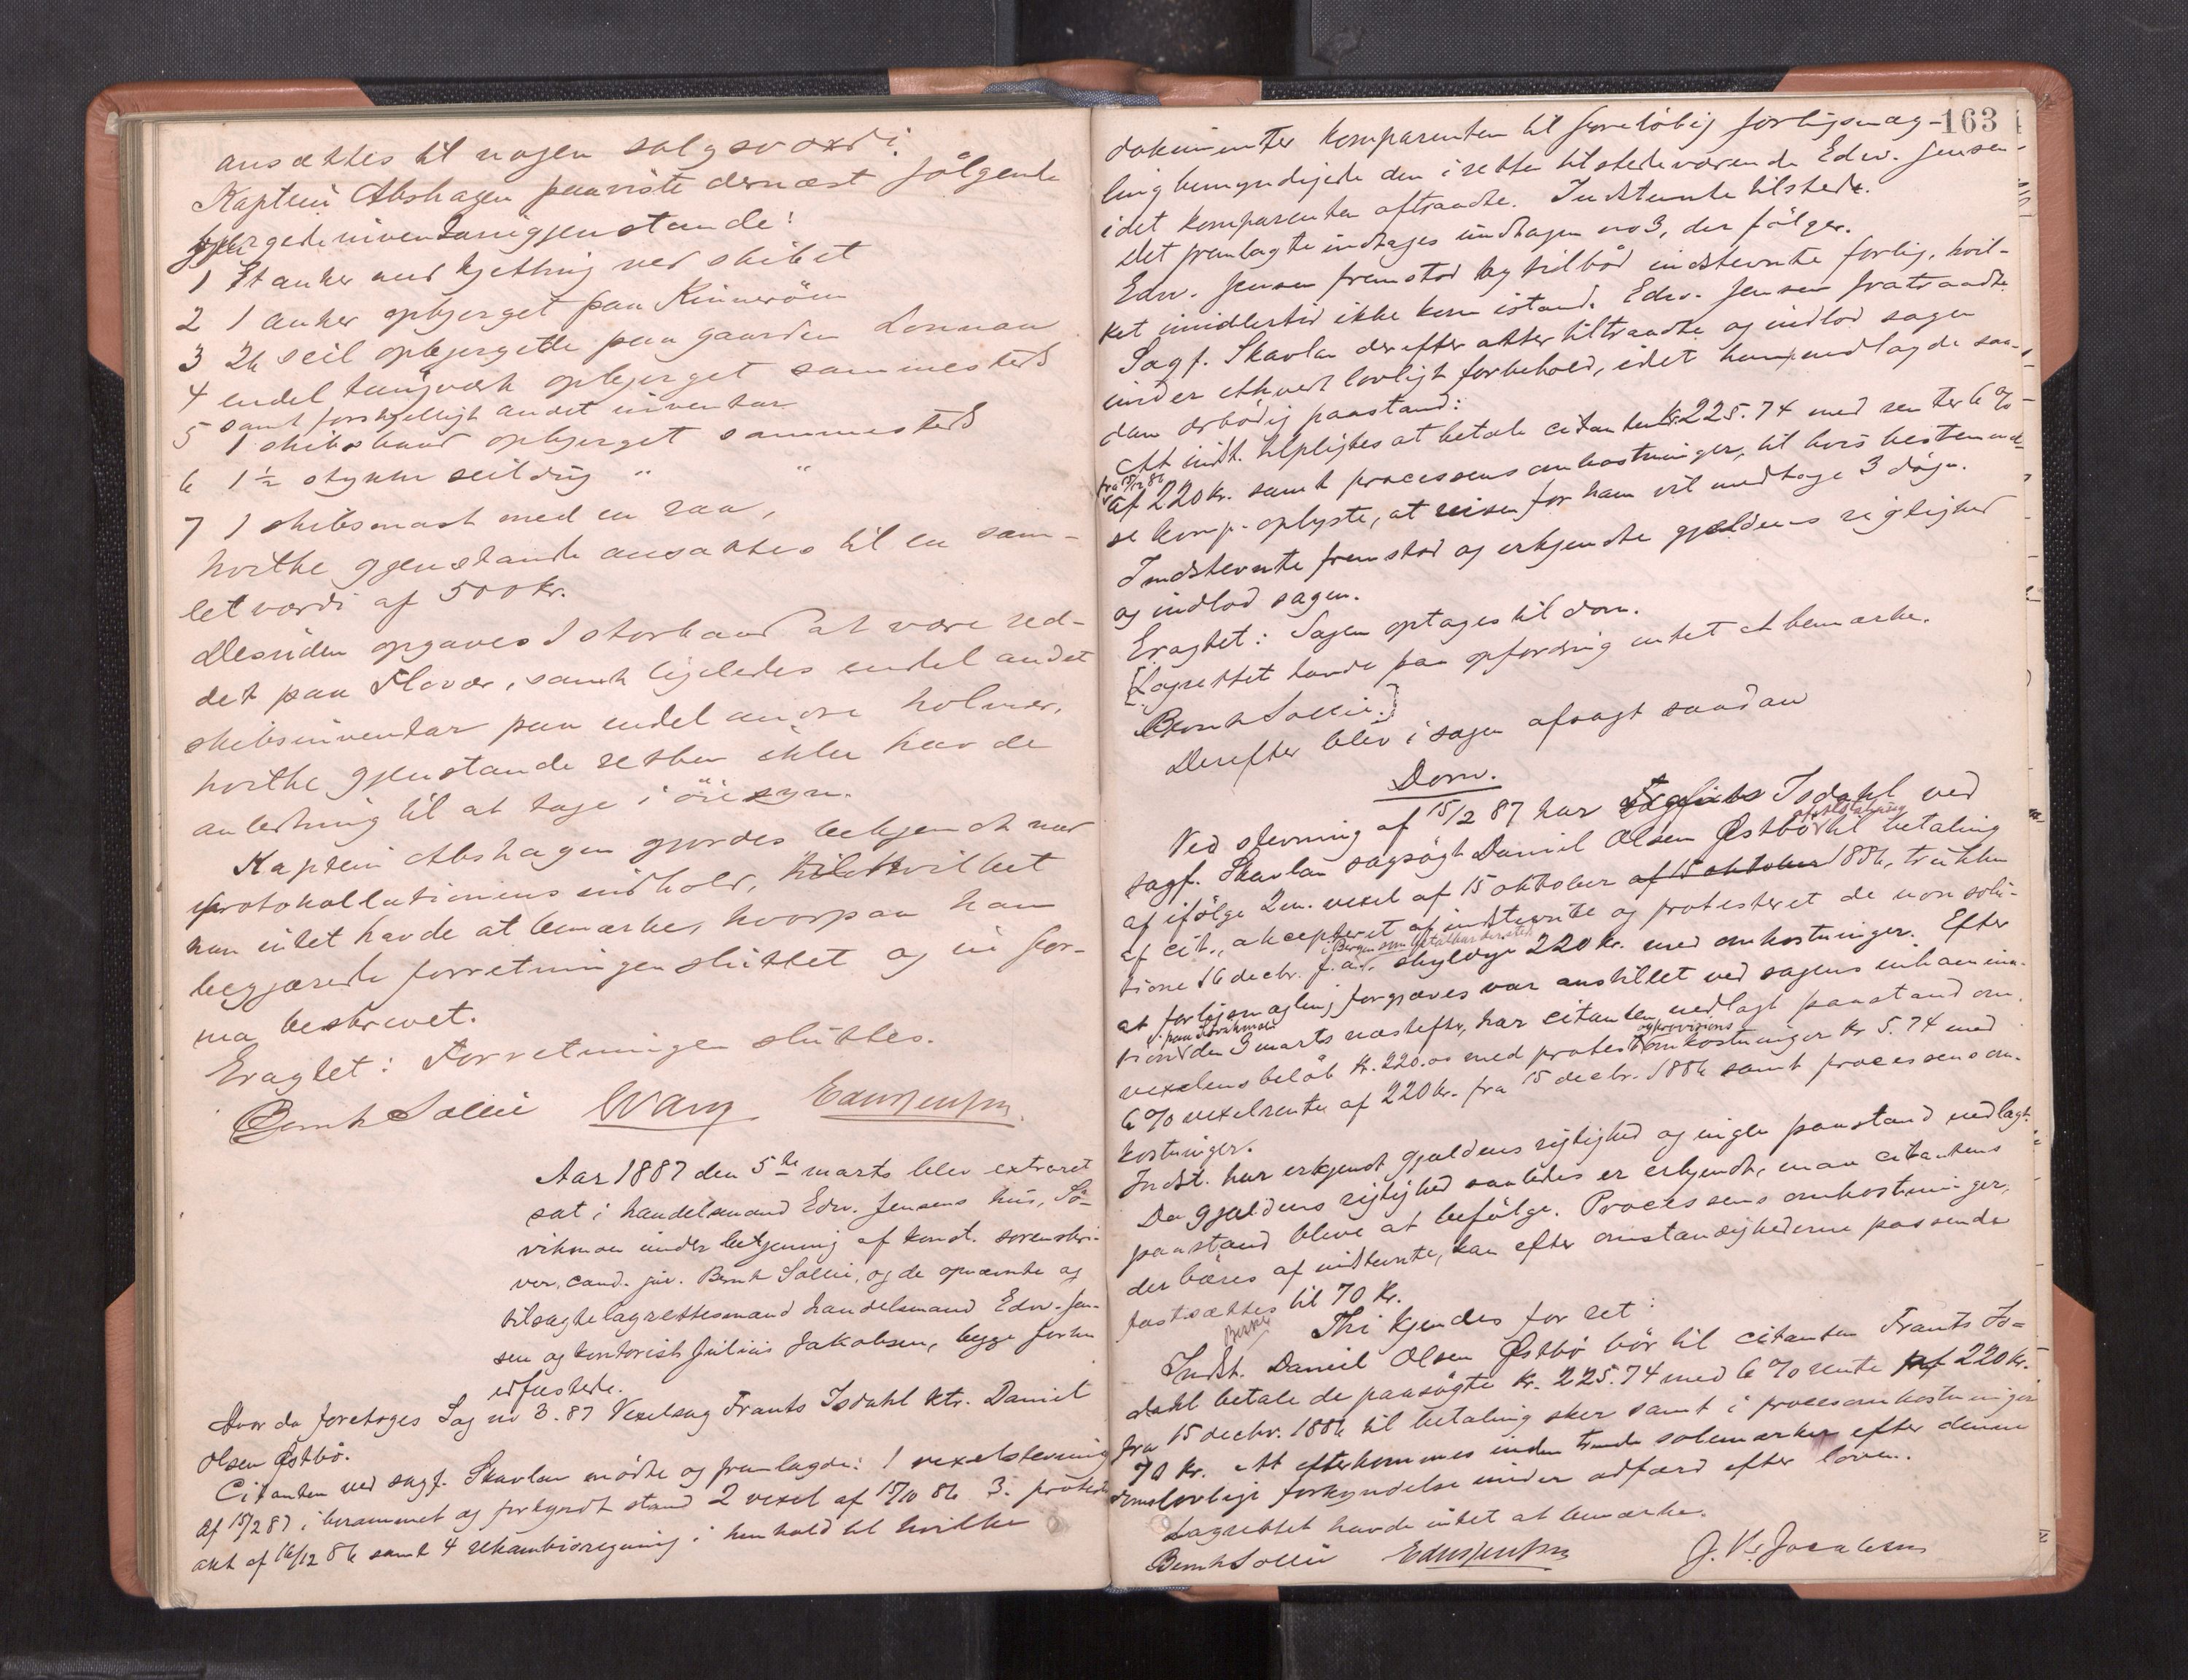 ansættes til nogen salgsværdi.
Kaptein Abshagen paaviste dernæst følgende
bjergede inventariegjenstande:
1 Et anker med kjetting ved skibet
2 1 anker opbjerget paa Kinnerøen
3 26 seil opbjergede paa gaarden
4 endel taugværk opbjerget sammesteds
samt forskjelligt andet inventar
5 1 skibsbaad opbjerget sammesteds
6 1½ stykke seildug " "
7 1 skibsmast med en raa,
hvilke gjenstande ansattes til en sam-
let værdi af 500 kr.
Desuden opgaves 1 storbaad at være red-
det paa Flovær, samt ligeledes endel andet
skibsinventar paa endel andre holmer,
hvilke gjenstande retten ikke havde
anledning til at tage i øiesyn.
Kaptein Abshagen gjordes bekjendt med
protokollationens indhold, til hvilket
han intet havde at bemærke, hvorpaa han
begjærede forretningen sluttet og in for-
ma beskrevet.
Eragtet: Forretningen sluttes.
Bernh Sollie Wang Edw Jensen
Aar 1887 den 5te marts blev extraret
sat i handelsmand Edw. Jensens hus, Sø-
vikmoen under betjening af konst. sorenskri-
ver, cand. jur. Bernh Sollie, og de opnævnte og
tilsagte lagrettesmænd handelsmand Edw. Jen-
sen og kontorist Julius Jakobsen, begge forhen
edfæstede.
Hvor da foretoges Sag no 3. 87 Vexelsag Frants Isdahl ktr. Daniel
Olsen Østbø.
Citanten ved sagf. Skavlan mødte og fremlagde: 1 vexelstevning
af 15/2 87 i berammet og forkyndt stand 2 vexel af 15/10 86 3. protest-
akt af 16/12 86 samt 4 rekambioregning i henhold til hvilke
163
dokumenter komparenten til foreløbig forligsmæg-
ling bemyndigede den i retten tilstedeværende Edw. Jensen
idet komparenten aftraadte. Indstevnte tilstede.
Det fremlagte indtages indtagen no 3, der følger.
Edw. Jensen fremstod og tilbød indstevnte forlig, hvil-
ket imidlertid ikke kom istand. Edw. Jensen fratraadte.
Sagf. Skavlan derefter atter tiltraadte og indlod sagen
under ethvert lovligt forbehold, idet han nedlagde saa-
dan ærbødig paastand:
At indst. tilpligtes at betale citanten kr. 225.74 med renter 6 %
fra 15/12 86
af 220 kr. samt processens omkostninger, til hvis bestemmel-
se komp. oplyste, at reisen for ham vil medtage 3 døgn.
Indstevnte fremstod og erkjendte gjældens rigtighed
og indlod sagen.
Eragtet: Sagen optages til dom.
[Lagrettet havde paa opfordring intet at bemærke.
Bernh Sollie.]
Derefter blev i sagen afsagt saadan
Dom.
Ved stevning af 15/2 87 har Isdahl ved
sagf. Skavlan sagsøgt Daniel Olsen Østbø til betaling
af ifølge 2en. vexel af 15 oktober af 15 oktober 1886, trukken
af cit., akcepteret af indstevnte og protesteret de non solu-
i Bergen som betalbar
tione 16 decbr. f. a., skyldige 220 kr. med omkostninger. Efter
at forligsmægling forgjæves var anstillet ved sagens inkamina-
paa Søvikmoen
tion den 3 marts næstefter, har citanten nedlagt paastand om
og provisions
vexelens beløb kr. 220.00 med protestomkostninger kr 5.74 med
6 % vexelrente af 220 kr. fra 15 decbr. 1886 samt processens om-
kostninger.
Indst. har erkjendt gjældens rigtighed og ingen paastand nedlagt.
Da gjældens rigtighed saaledes er erkjendt, maa citantens
paastand blive at befølge. Processens omkostninger,
der bæres af indstevnte, kan efter omstændighederne passende
fastsættes til 70 kr.
Thi kjendes for ret:
Indst. Daniel Olsen Østbø bør til citanten Frants Is-
dahl betale de paasøgte kr. 225.74 med 6 % rente af 220 kr.
fra 15 decbr. 1886 til betaling sker samt i procesomkostninger
70 kr. At efterkommes inden trende solemærker efter denne
doms lovlige forkyndelse under adfærd efter loven.
Lagrettet havde intet at bemærke.
Bernh Sollie Edw Jensen J. Jacobsen